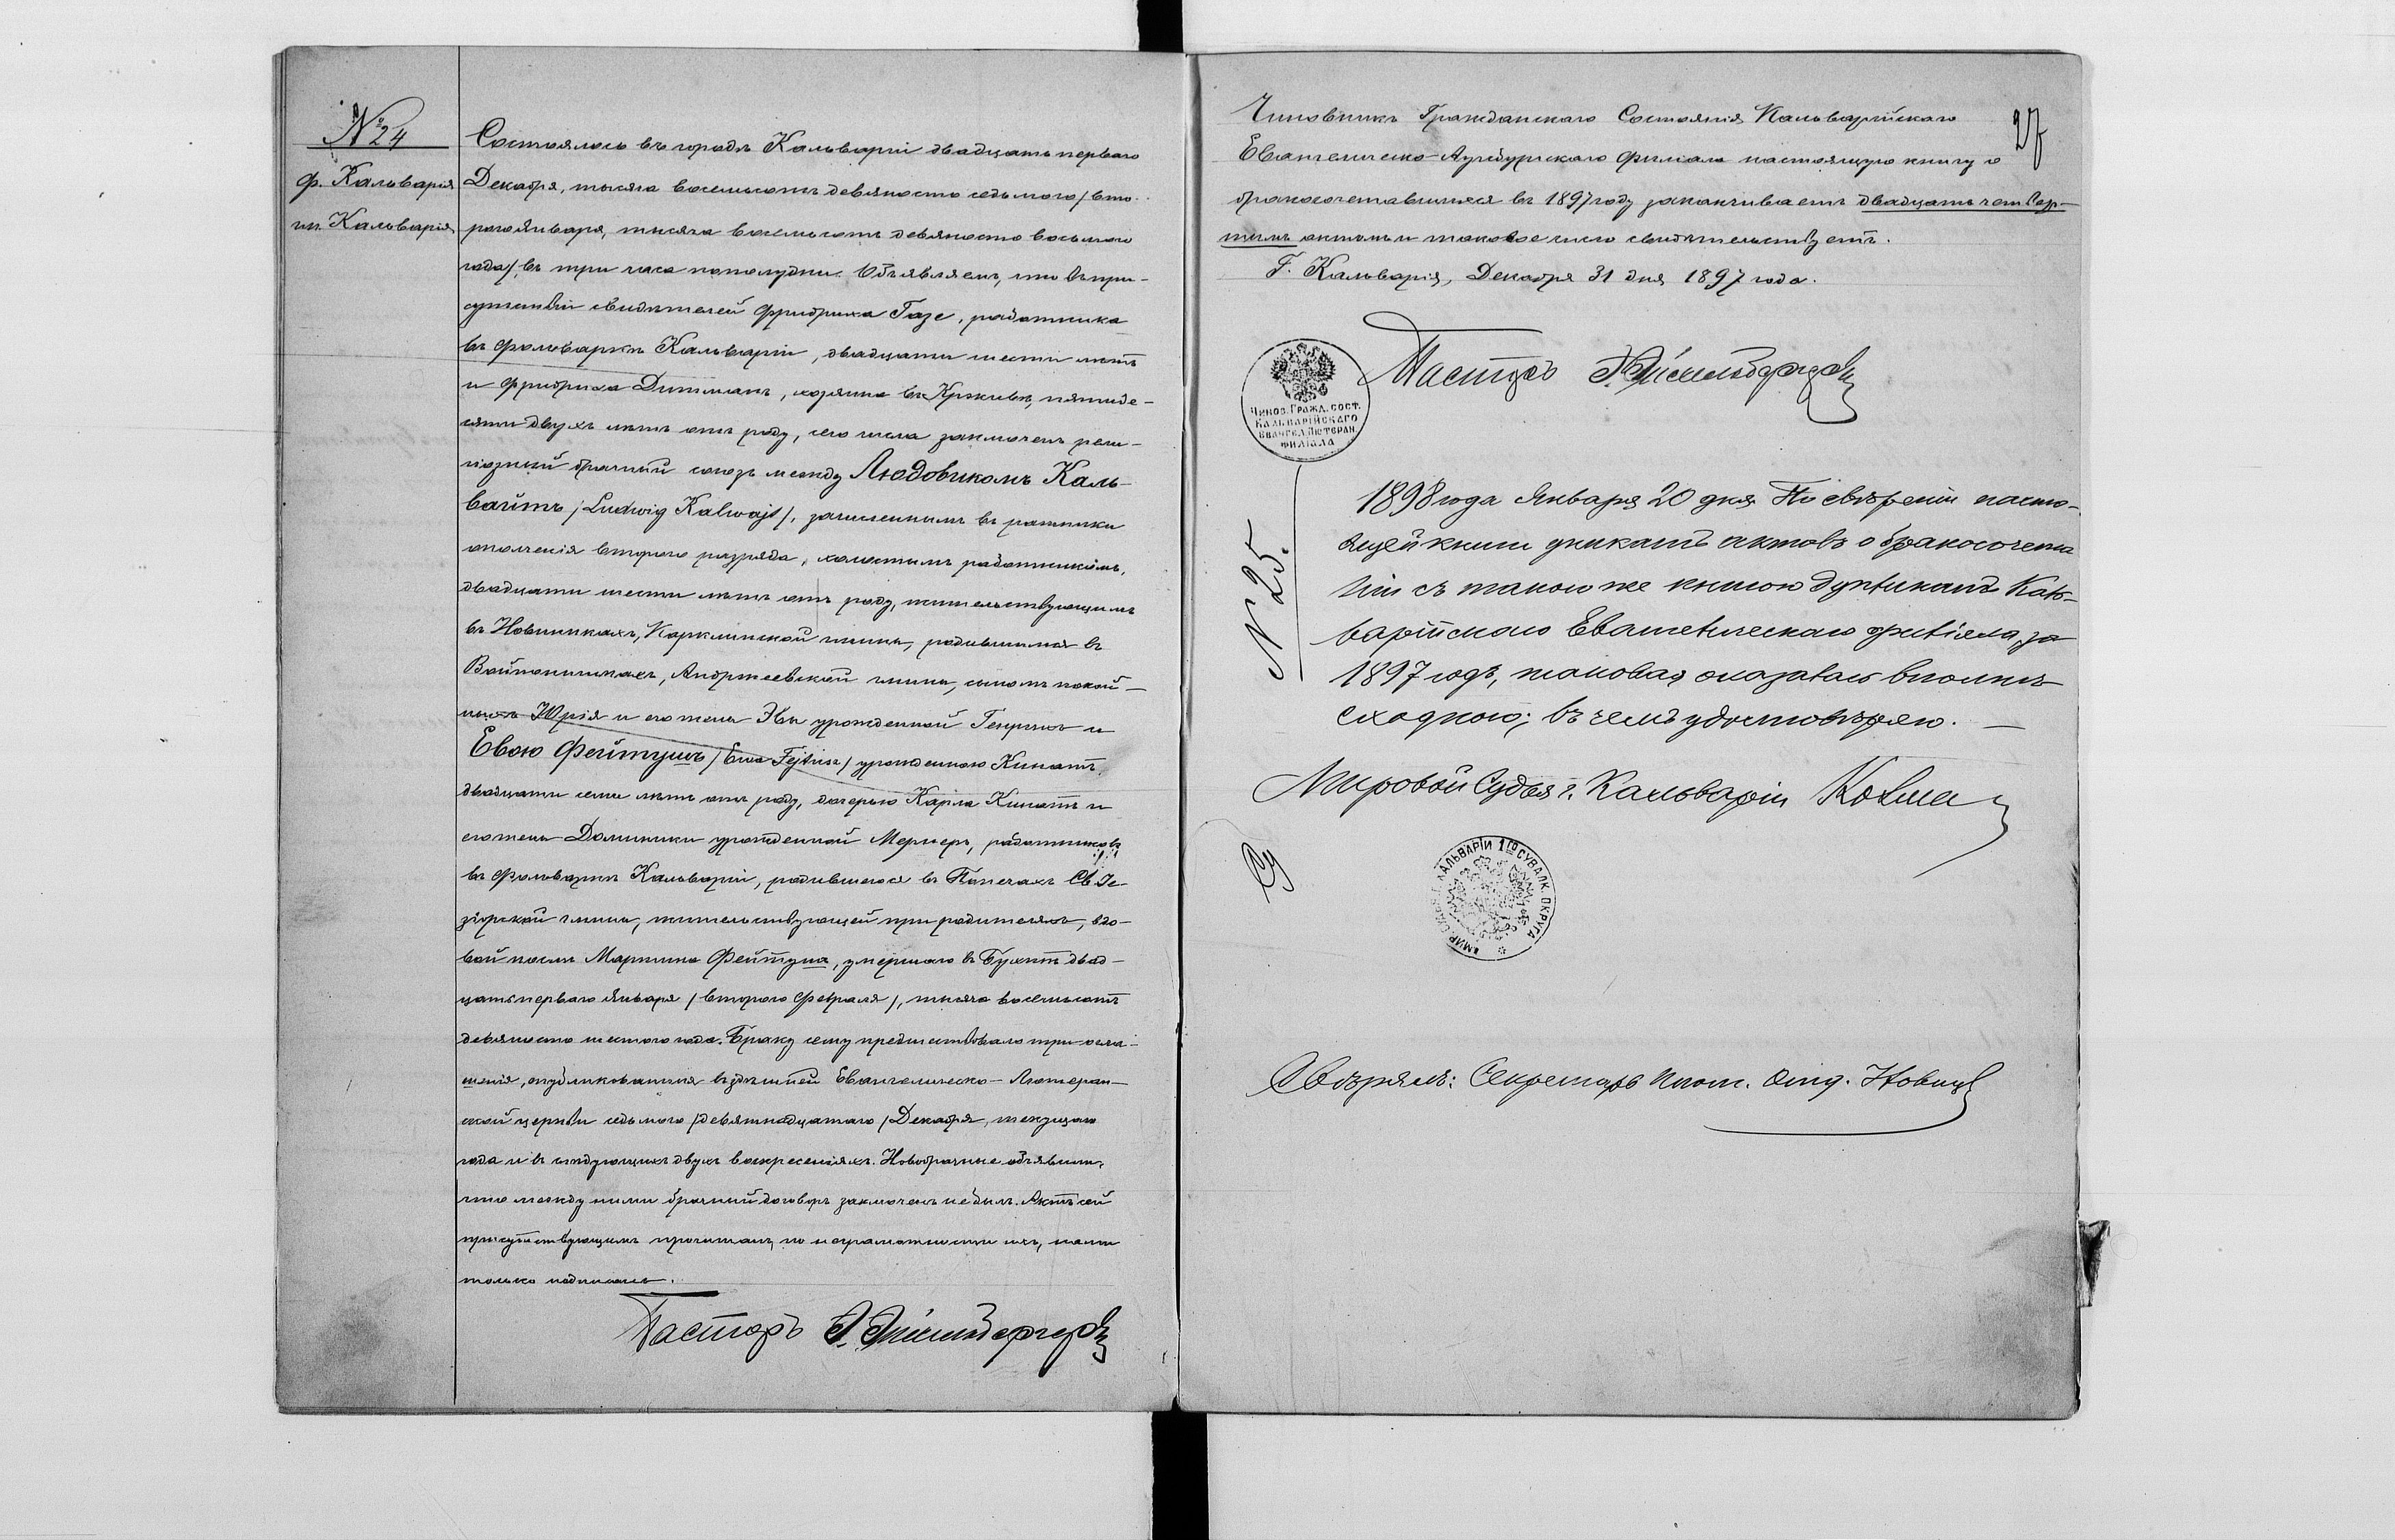 № 24
ф. Кальварія
гм. Кальварія
Состоялось въ городѣ Кальваріи двадцать перваго
Декабря, тысяча восемьсотъ девяносто седьмого / вто-
рого Января, тысяча восемьсотъ девяносто восьмого
года /, въ три часа пополудни. Объявляемъ, что въ при-
сутствіи свидѣтелей Фридриха Газе, работника
въ Фольваркѣ Кальваріи, двадцати шести лѣтъ
и Фридриха Дитманъ, хозяина въ, пятиде-
сяти двухъ лѣтъ отъ роду, сего числа заключенъ рели-
гіозный брачный союзъ между Людовикомъ Каль-
вайтъ / Ludwig Kalwajt /, зачисленнымъ въ ратники
ополченія второго разряда, холостымъ работникомъ,
двадцати шести лѣтъ отъ роду, жительствующимъ
въ Новиникахъ, гмины, родившимся въ
Андржеевской гмины, сыномъ покой-
ныхъ Юрія и его жены Эвы урожденной и
Евою Фейтушъ / Ewa Fejtusz / урожденною Кинатъ,
двадцати семи лѣтъ отъ роду, дочерью Карла Кинатъ и
его жены Доминики урожденной Мернеръ, работниковъ
въ Фольваркѣ Кальваріи, родившеюся въ Св-Је-
зіорской гмины, жительствующей при родителяхъ, вдо-
вой послѣ Мартина Фейтуша, умершаго въ Бухтѣ двад-
цать перваго Января / второго Февраля /, тысяча восемьсотъ
девяносто шестого года. Браку сему предшествовало три огла-
шенія, опубликованныя въ здѣшней Евангелическо-Лютеран-
ской церкви седьмого / девятнадцатаго / Декабря, текущаго
года и въ слѣдующихъ двухъ воскресеніяхъ. Новобрачные объявили,
что между ними брачный договоръ заключенъ не былъ. Актъ сей
присутствующимъ прочитанъ, по неграмотности ихъ, нами
только подписанъ.
Пасторъ
27
Чиновникъ Гражданскаго Состоянія Кальварійскаго
Евангелическо-Аугсбургскаго филіала настоящую книгу о
бракосочетавшихся въ 1897 году заканчиваетъ двадцать четвер-
тымъ актомъ и таковое число свидѣтельствуетъ.
Г. Кальварія, Декабря 31 дня 1897 года.
Пасторъ
ЧИНОВ. ГРАЖД. СОСТ.
КАЛЬВАРІЙСКАГО
ЕВАНГЕЛ. ЛЮТЕРАН.
ФИЛІАЛА
№ 25.
1898 года Января 20 дня По свѣреніи насто-
ящей книги уникатъ актовъ о бракосочета
ніи съ такою же книгою дупликатъ Каль-
варійскаго Евангелическаго филіяла, за
1897 годъ, таковая оказалась вполнѣ
сходною; въ чемъ удостовѣряю.
Мировой Судья г. Кальваріи
КАЛЬВАРІИ 1ГО СУВАЛК. ОКРУГА
Свѣрялъ: Секретарь Ипот. Отд.